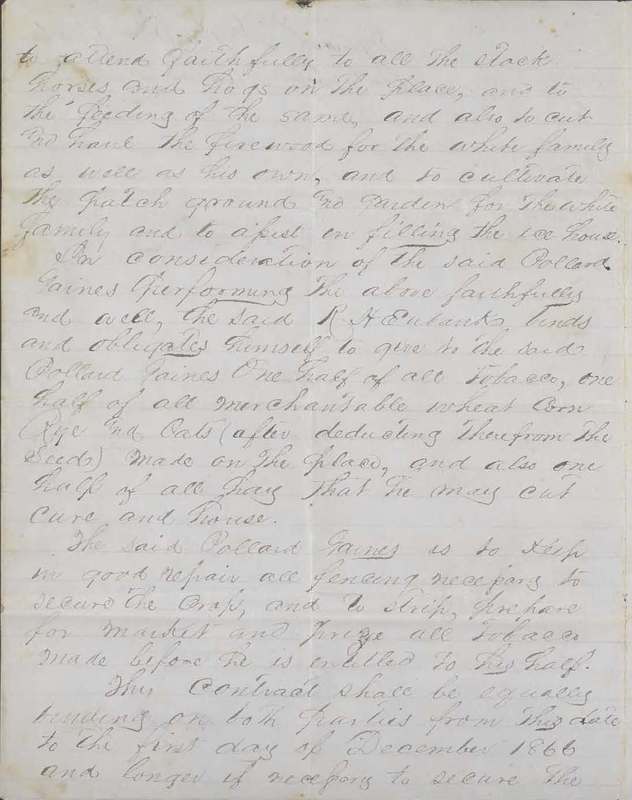 to attend faithfully to all the stock
horses and hogs on the place, and to
the feeding of the same, and also to cut
and haul the firewood for the white family
as well as his own, and to cultivate
the patch ground and garden for the white
family and to assist in filling the ice house.
In consideration of the said Pollard
Gaines performing the above faithfully
and well, the said R. H. Eubank, binds
and obligates himself to give to the said
Pollard Gaines One half of all Tobacco, one
half of all merchantable wheat Corn
Rye and Oats (after deducting therefrom the
Seeds) made on the place, and also one
half of all Hay that he may cut
cure and house.
The said Pollard Gaines is to keep
in good repair all fencing necessary to
secure the Crops, and to strip, prepare
for market and prize all Tobacco
made before he is entitled to his half.
This Contract shall be equally
binding on both parties from this date
to the first day of December 1866
and longer if necessary to secure the